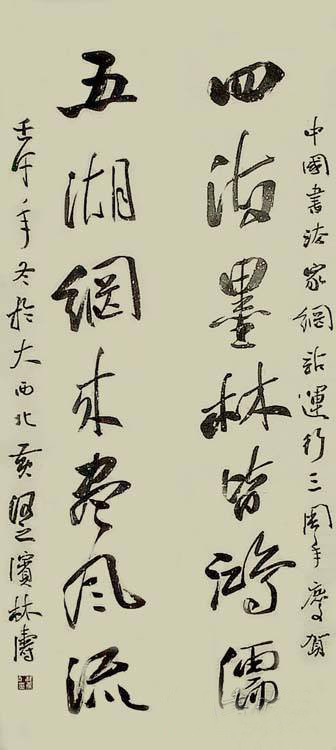 中國書法家網站運行三周年慶賀
四海墨林皆鴻儒
五湖網來盡風流
壬午年冬於大西北黃河之濱林濤